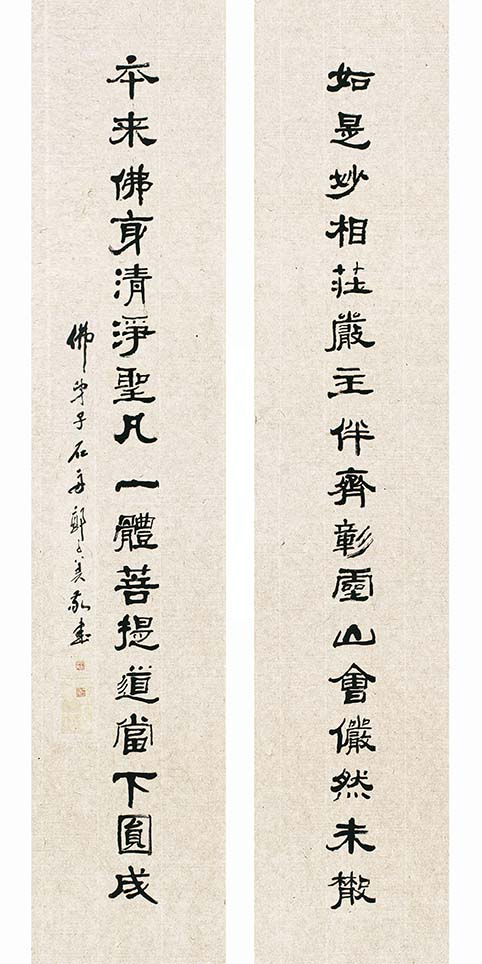 如是妙相莊嚴主伴齊彰靈山會儼然未散
本来佛身清淨聖凡一體菩提道當下圓成
佛弟子石鄭美敬書